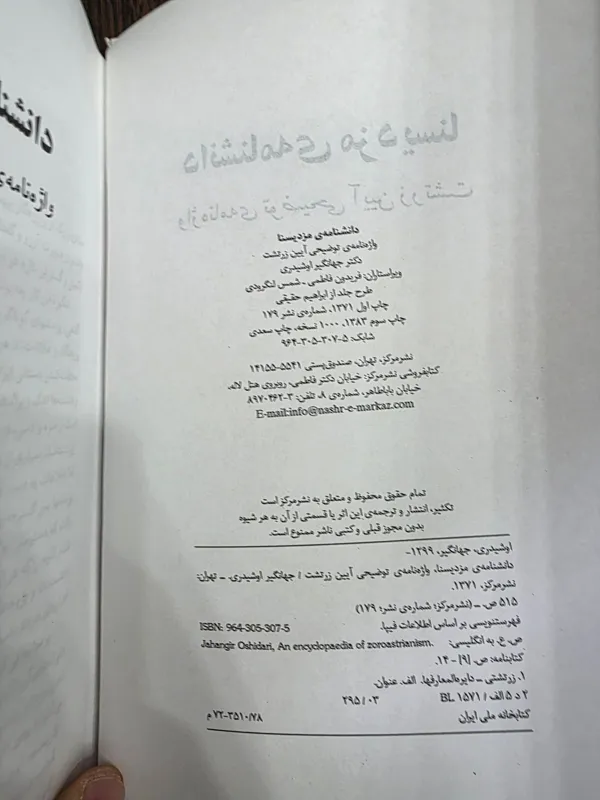 دانشنا
واژه‌نامه‌ی
دانشنامه‌ی مزدیسنا
واژه‌نامه‌ی توضیحی آیین زرتشت
دانشنامه‌ی مزدیسنا
واژه‌نامه‌ی توضیحی آیین زرتشت
دکتر جهانگیر اوشیدری
ویراستاران: فریدون فاطمی ـ شمس لنگرودی
طرح جلد از ابراهیم حقیقی
چاپ اول ۱۳۷۱، شماره‌ی نشر ۱۷۹
چاپ سوم ۱۳۸۳، ۱۰۰۰ نسخه، چاپ سعدی
شابک: ۵-۳۰۷-۳۰۵-۹۶۴
نشرمرکز، تهران، صندوق‌پستی ۵۵۴۱-۱۴۱۵۵
کتابفروشی نشرمرکز: خیابان دکتر فاطمی، روبروی هتل لاله،
خیابان باباطاهر، شماره‌ی ۸، تلفن: ۳-۸۹۷۰۴۶۲
E-mail:info@nashr-e-markaz.com
تمام حقوق محفوظ و متعلق به نشرمرکز است
تکثیر، انتشار و ترجمه‌ی این اثر یا قسمتی از آن به هر شیوه
بدون مجوز قبلی و کتبی ناشر ممنوع است.
اوشیدری، جهانگیر، ۱۲۹۹-
دانشنامه‌ی مزدیسنا، واژه‌نامه‌ی توضیحی آیین زرتشت / جهانگیر اوشیدری. ـ تهران:
نشرمرکز، ۱۳۷۱.
۵۱۵ ص. ـ (نشرمرکز؛ شماره‌ی نشر؛ ۱۷۹)
فهرستنویسی بر اساس اطلاعات فیپا. ISBN: 964-305-307-5
ص. ع. به انگلیسی: Jahangir Oshidari, An encyclopaedia of zoroastrianism.
کتابنامه: ص. [۹] - ۱۴.
۱. زرتشتی ـ دایره‌المعارفها. الف. عنوان.
۲ د ۵ الف / ۱۵۷۱ BL ۲۹۵ / ۰۳
کتابخانه ملی ایران ۷۲-۳۵۱۰/۷۸ م